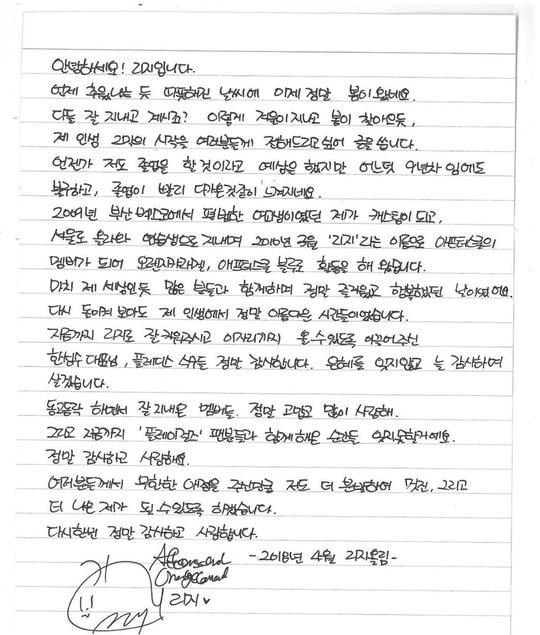 안녕하세요! 리지입니다.
언제 추웠냐는 듯 따뜻해진 날씨에 이제 정말 봄이 왔네요.
다들 잘 지내고 계시죠? 이렇게 겨울이 지나고 봄이 찾아오듯,
제 인생 2막의 시작을 여러분들께 전해드리고 싶어 글을 씁니다.
언젠가 저도 졸업을 할 것이라고 예상은 했지만 어느덧 9년차 임에도
불구하고, 졸업이 빨리 다가온것같이 느껴지네요.
2009년 부산 벡스코에서 평범한 여고생이였던 제가 캐스팅이 되고,
서울로 올라와 연습생으로 지내며 2010년 3월 '리지'라는 이름으로 애프터스쿨의
멤버가 되어 오렌지캬라멜, 애프터스쿨 블루로 활동을 해 왔습니다.
마치 제 세상인듯 많은 분들과 함께하며 정말 즐거웠고 행복했던 날이였어요.
다시 돌이켜 보아도 제 인생에서 정말 아름다운 시간들이었습니다.
지금까지 리지로 잘 키워주시고 이자리까지 올 수 있도록 이끌어주신
한성수 대표님, 플레디스 식구들 정말 감사합니다. 은혜를 잊지않고 늘 감사하며
살겠습니다.
동고동락 하면서 잘 지내온 멤버들. 정말 고맙고 많이 사랑해.
그리고 지금까지 '플레이걸즈' 팬분들과 함께 해온 순간들 잊지못할거예요.
정말 감사하고 사랑해요.
여러분들께서 무한한 애정을 주신만큼 저도 더 분발하여 멋진, 그리고
더 나은 제가 될 수 있도록 하겠습니다.
다시한번 정말 감사하고 사랑합니다.
-2018년 4월 리지올림-
리지♥